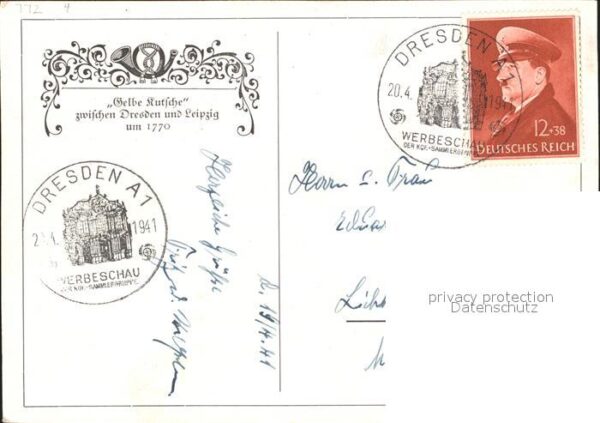 772
„Gelbe Kutsche"
zwischen Dresden und Leipzig
um 1770
DRESDEN A1
20.4. 1941
WERBESCHAU
DER KDF.-SAMMLERGRUPPE
12+38
DEUTSCHES REICH
DRESDEN A1
20.4. 1941
WERBESCHAU
DER KDF.-SAMMLERGRUPPE
Herzliche Grüße
19/4.41
Herrn u. Frau
privacy protection
Datenschutz